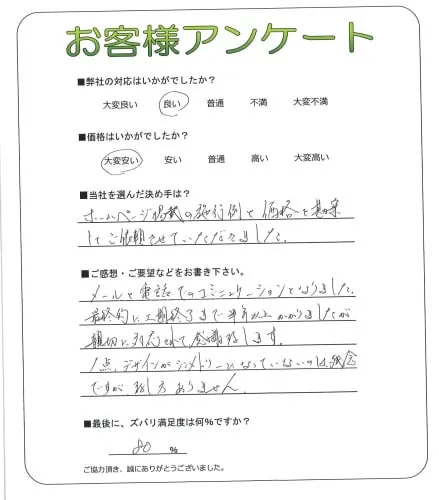 お客様アンケート
■弊社の対応はいかがでしたか?
大変良い 良い 普通 不満 大変不満
■価格はいかがでしたか?
大変安い 安い 普通 高い 大変高い
■当社を選んだ決め手は?
ホームページ掲載の施行例と価格を勘案
してご依頼させていただきました。
■ご感想・ご要望などをお書き下さい。
メールと電話でのコミニュケーションとなりました。
最終的に工期終了まで半年以上かかりましたが
親切に対応されて感謝致します。
1点、デザインがシンメトリーになっていないのは残念
ですが致し方ありません。
■最後に、ズバリ満足度は何%ですか?
80 %
ご協力頂き、誠にありがとうございました。